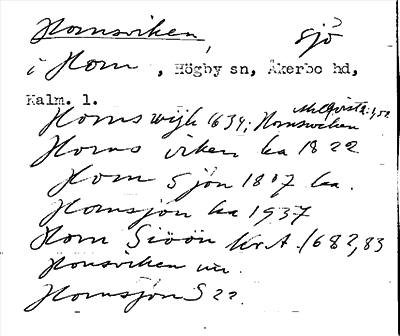 Hornsviken, sjö
i Horn, Högby sn, Åkerbo hd,
Kalm. l.
Horns wijk 1634; Hornsvicken
Horns viken ka 1822
Horn sjön 1807 ka.
Hornsjön ka 1937
Horn Siöön kr.A. 1682,83
Honsviken un.
Hornsjön S 22.